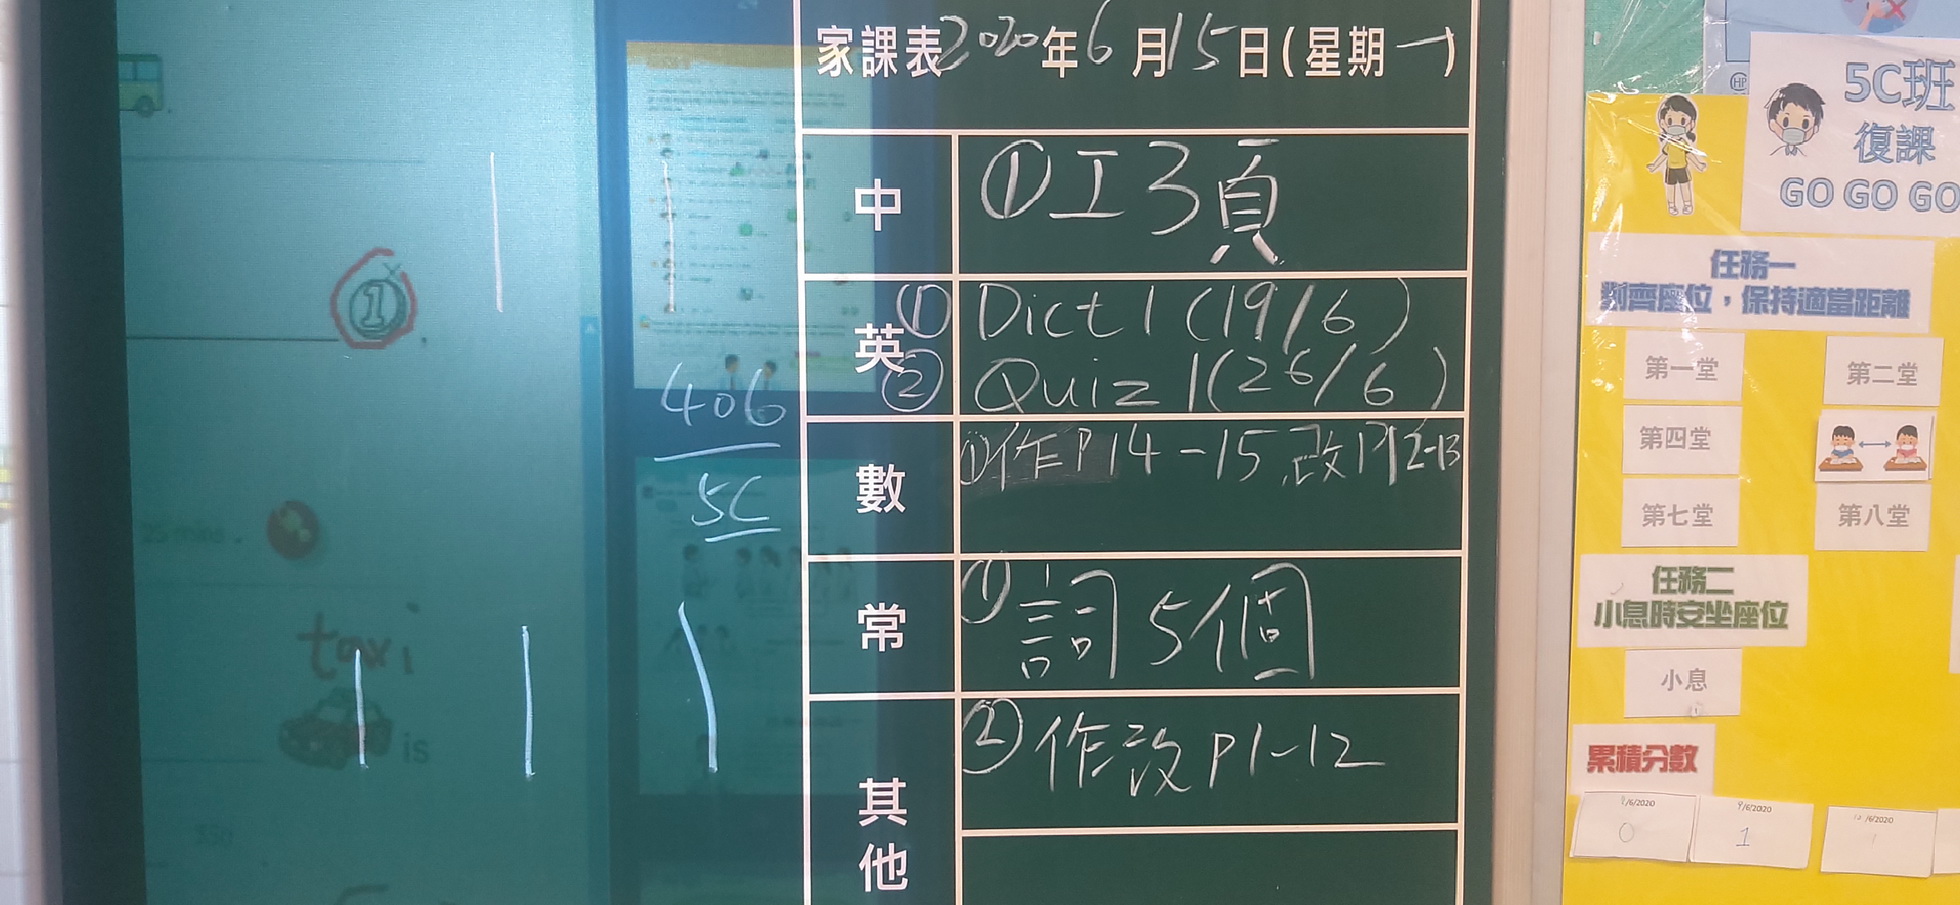 家課表2020年6月15日(星期一)
中
①工3頁
英
① Dict 1 (19/6)
② Quiz 1 (26/6)
數
①作P14-15 改P12-13
常
①詞5個
其他
②作改P1-12
406
5C
①
taxi
is
5C班
復課
GO GO GO
任務一
對齊座位，保持適當距離
第一堂
第二堂
第四堂
第七堂
第八堂
任務二
小息時安坐座位
小息
累積分數
8/6/2020
0
9/6/2020
1